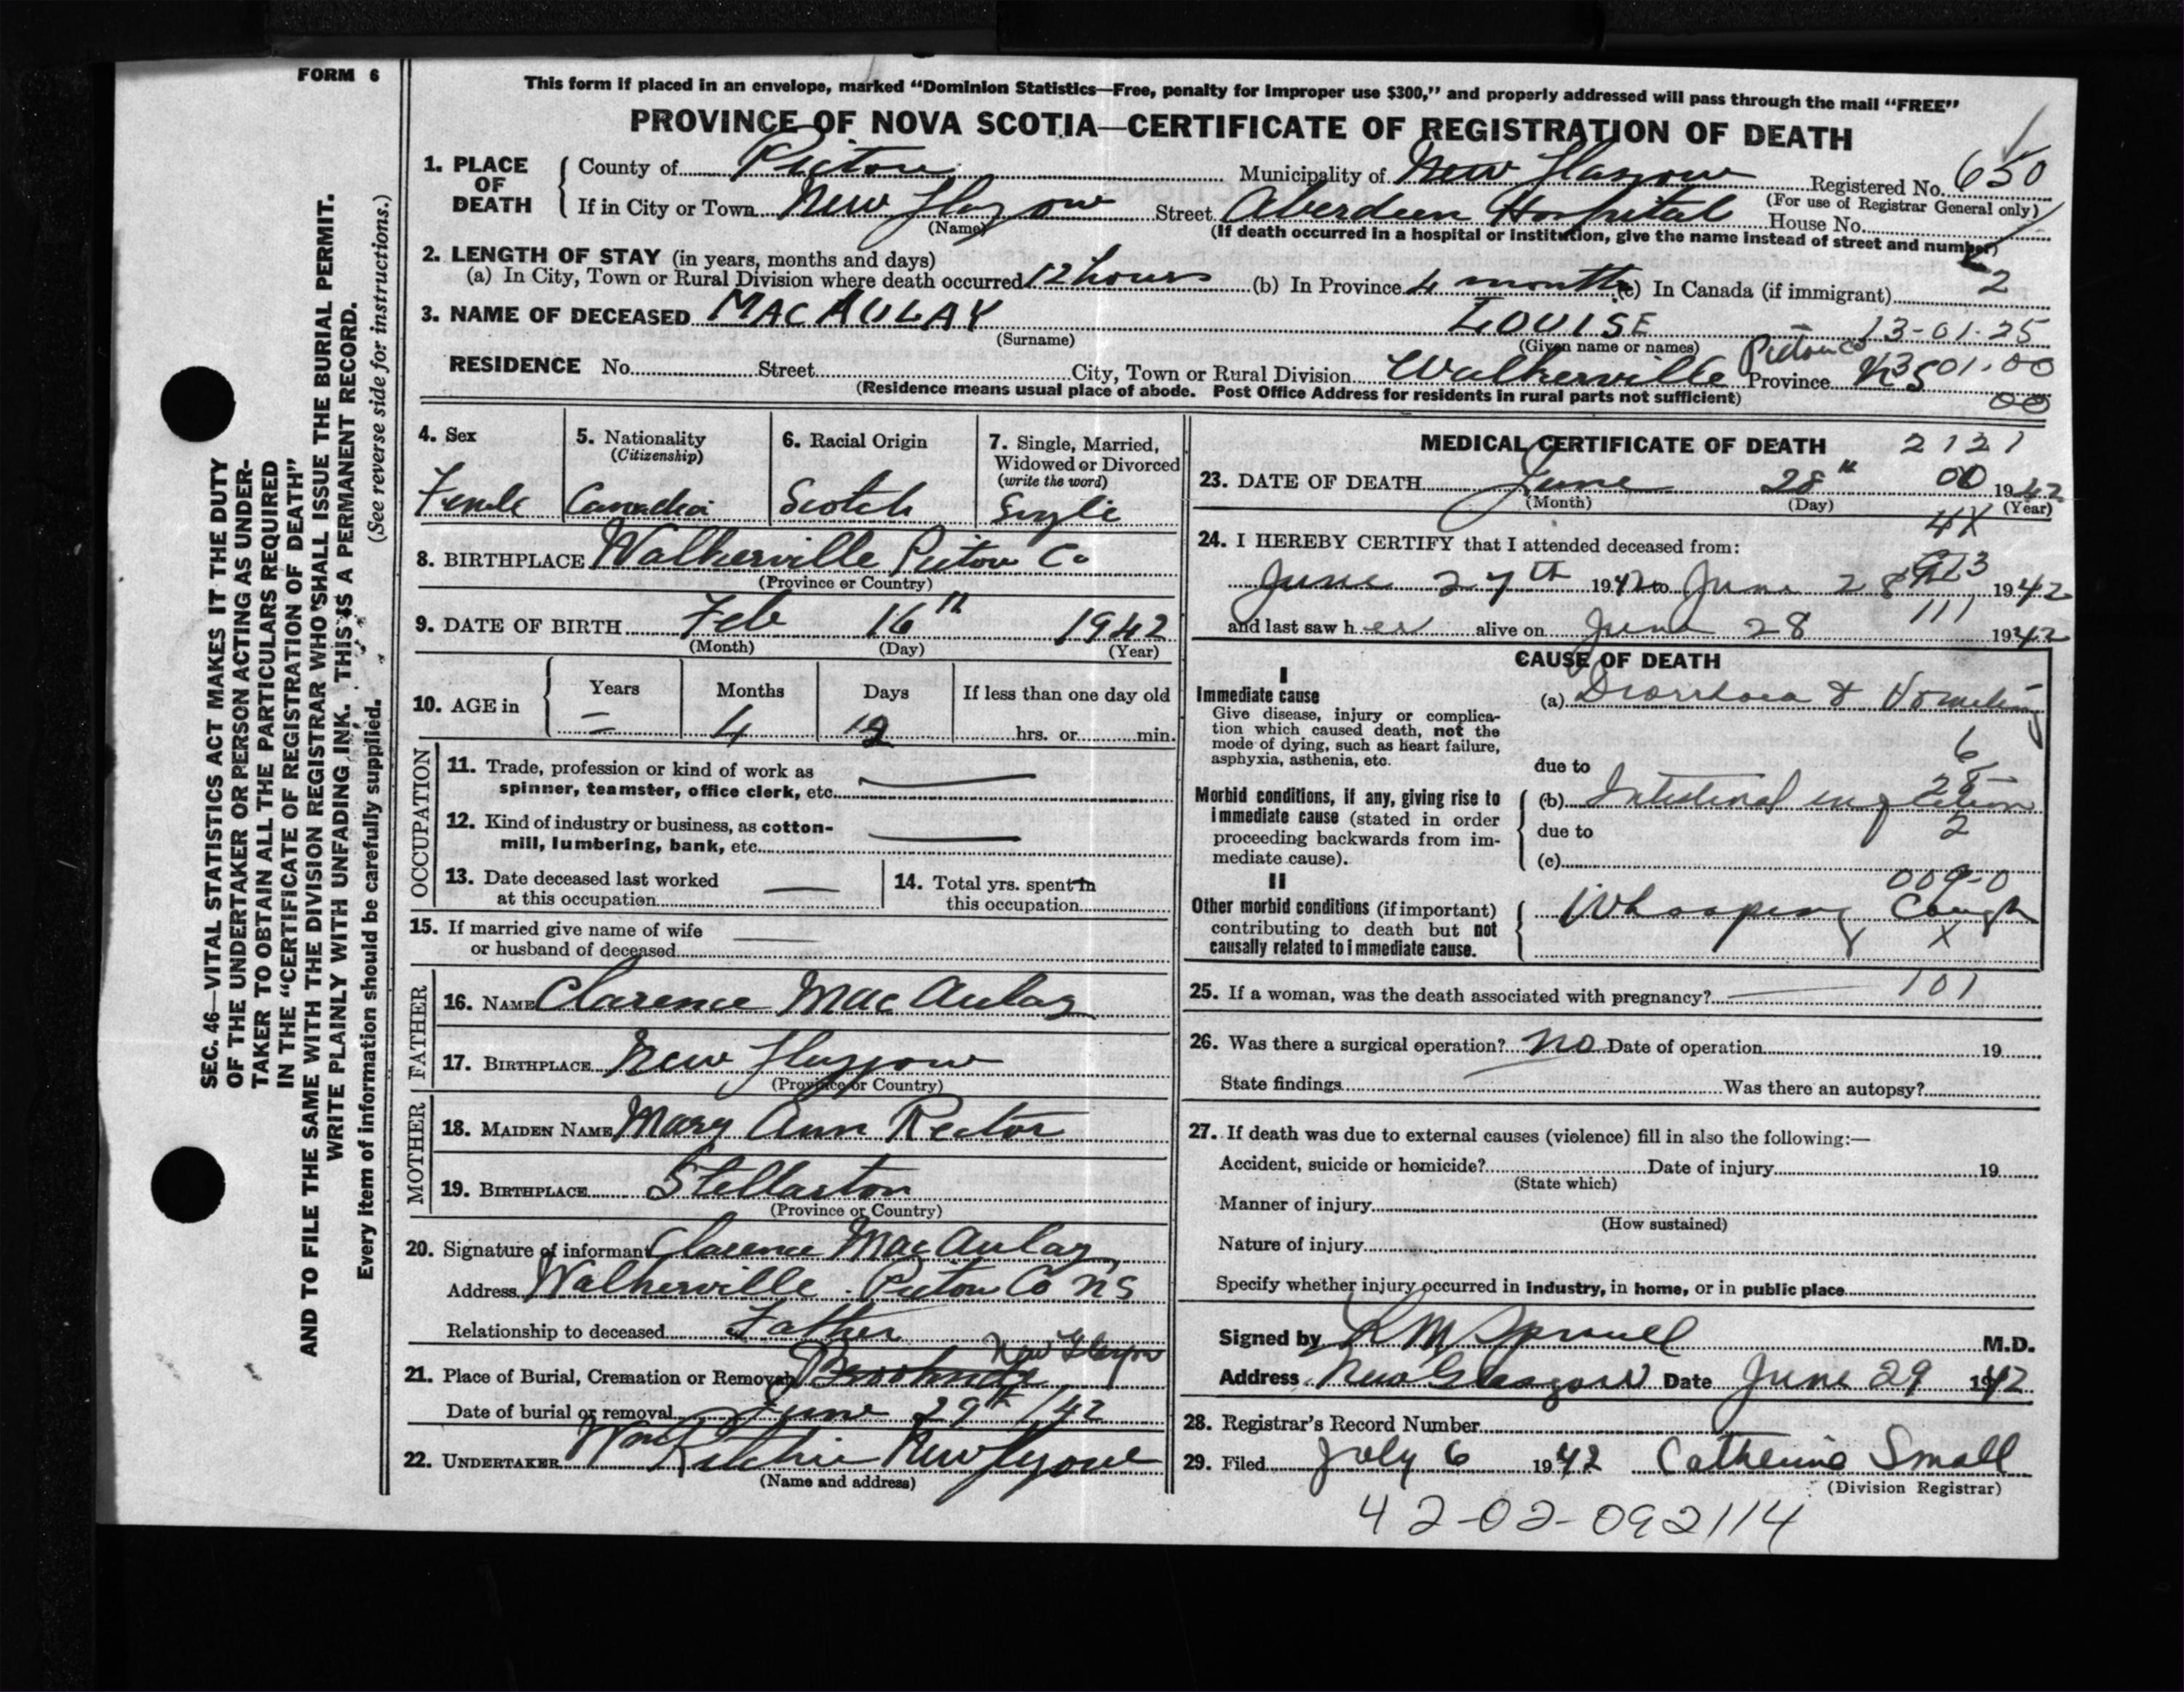 FORM 6
This form if placed in an envelope, marked "Dominion Statistics—Free, penalty for improper use $300," and properly addressed will pass through the mail "FREE"
PROVINCE OF NOVA SCOTIA—CERTIFICATE OF REGISTRATION OF DEATH
1. PLACE OF DEATH
County of Pictou Municipality of New Glasgow Registered No. 650
(For use of Registrar General only)
If in City or Town New Glasgow Street Aberdeen Hospital House No.
(Name) (If death occurred in a hospital or institution, give the name instead of street and number)
2. LENGTH OF STAY (in years, months and days)
(a) In City, Town or Rural Division where death occurred 12 hours (b) In Province 4 months (c) In Canada (if immigrant) 2
3. NAME OF DECEASED MACAULAY LOUISE 13-01-25
(Surname) (Given name or names)
RESIDENCE No. Street City, Town or Rural Division Walkerville Pictou Co Province NS 01.00
(Residence means usual place of abode. Post Office Address for residents in rural parts not sufficient) 00
4. Sex
Female
5. Nationality
(Citizenship)
6. Racial Origin
Scotch
7. Single, Married, Widowed or Divorced
(write the word)
Single
8. BIRTHPLACE Walkerville Pictou Co
(Province or Country)
9. DATE OF BIRTH Feb 16th 1942
(Month) (Day) (Year)
10. AGE in
Years Months Days If less than one day old
– 4 12 hrs. or min.
OCCUPATION
11. Trade, profession or kind of work as
spinner, teamster, office clerk, etc.
12. Kind of industry or business, as cotton-
mill, lumbering, bank, etc.
13. Date deceased last worked
at this occupation
14. Total yrs. spent in
this occupation
15. If married give name of wife
or husband of deceased
FATHER
16. NAME Clarence MacAulay
17. BIRTHPLACE New Glasgow
(Province or Country)
MOTHER
18. MAIDEN NAME Mary Ann Rector
19. BIRTHPLACE Stellarton
(Province or Country)
20. Signature of informant Clarence MacAulay
Address Walkerville Pictou Co NS
Relationship to deceased Father
New Glasgow
21. Place of Burial, Cremation or Removal
Date of burial or removal June 29th/42
22. UNDERTAKER Wm Ritchie New Glasgow
(Name and address)
MEDICAL CERTIFICATE OF DEATH 2121
23. DATE OF DEATH June 28th 00 1942
(Month) (Day) (Year)
4X
24. I HEREBY CERTIFY that I attended deceased from:
June 27th 1942 to June 28 1942
111
and last saw her alive on June 28 1942
CAUSE OF DEATH
I
Immediate cause
Give disease, injury or complica-
tion which caused death, not the
mode of dying, such as heart failure,
asphyxia, asthenia, etc.
(a) Diarrhoea & Vomiting
6
due to
Morbid conditions, if any, giving rise to
immediate cause (stated in order
proceeding backwards from im-
mediate cause).
(b) Intestinal
due to 2
(c)
009-0
II
Other morbid conditions (if important)
contributing to death but not
causally related to immediate cause.
Whooping Cough
X
25. If a woman, was the death associated with pregnancy? 101
26. Was there a surgical operation? No Date of operation 19
State findings Was there an autopsy?
27. If death was due to external causes (violence) fill in also the following:—
Accident, suicide or homicide? Date of injury 19
(State which)
Manner of injury
(How sustained)
Nature of injury
Specify whether injury occurred in industry, in home, or in public place
Signed by M.D.
Address New Glasgow Date June 29 1942
28. Registrar's Record Number
29. Filed July 6 1942 Catherine Small
(Division Registrar)
42-02-092114
SEC. 46—VITAL STATISTICS ACT MAKES IT THE DUTY
OF THE UNDERTAKER OR PERSON ACTING AS UNDER-
TAKER TO OBTAIN ALL THE PARTICULARS REQUIRED
IN THE "CERTIFICATE OF REGISTRATION OF DEATH"
AND TO FILE THE SAME WITH THE DIVISION REGISTRAR WHO SHALL ISSUE THE BURIAL PERMIT.
WRITE PLAINLY WITH UNFADING INK. THIS IS A PERMANENT RECORD.
Every item of information should be carefully supplied. (See reverse side for instructions.)